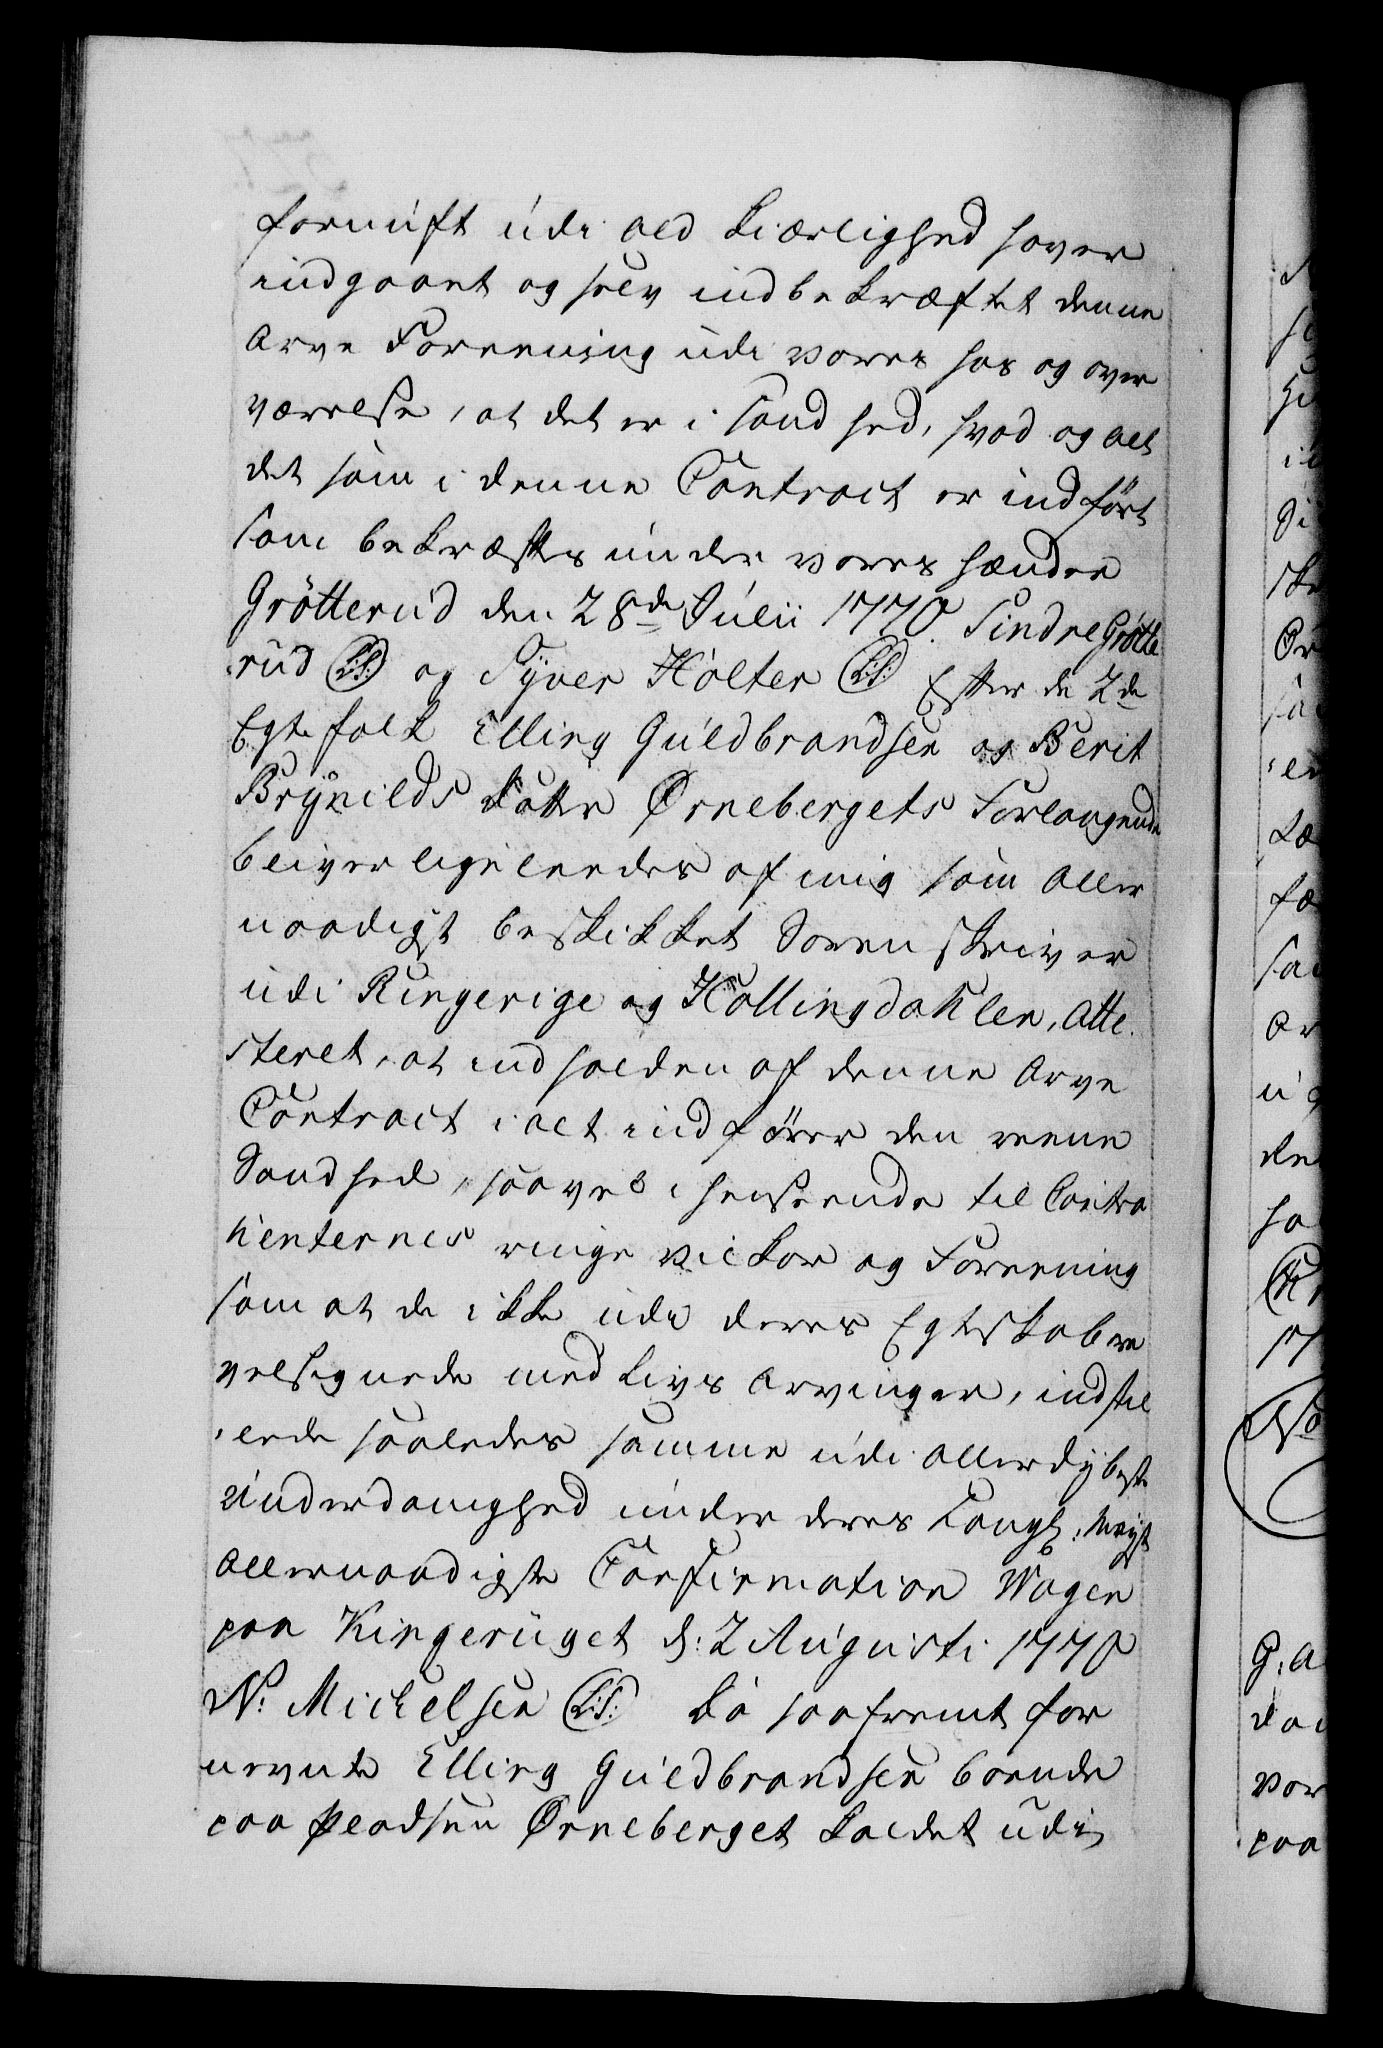 fornuft udi ald Kiærlighed haver
indgaaet og selv indbekræftet denne
Arve Foreening udi vores hos og over
værelse, at det er i Sandhed, hvad og alt
det som i denne Contract er indført
som bekræftes under vores hænder
Grötterud den 28de Julii 1770. Sindre Grötte
rud (L:S:) og Syver Holter (L:S:) Efter de 2de
Egtefolk Elling Guldbrandsen og Berit
Brynilds Datter Ørnebergets Forlangende
bliver ligeleedes af mig som Aller
naadigst beskikket Sorenskriver
udi Ringerige og Hallingdahlen, Atte
steret, at indholden af denne Arve
Contract i alt indfører den reene
Sandhed, saavel i henseende til Contra
henternes ringe Vilkor og Foreening
som at de ikke udi deres Egteskab er
velsignede med Livs Arvinger, indstil
lende saaledes samme udi allerdybeste
Underdanighed under deres Kongl: Mayst
Allernaadigste Confirmation Wagen
paa Ringeriget d: 2 Augusti 1770
N: Michelsen (L:S:) Da saafremt for
nevnte Elling Guldbrandsen boende
paa Pladsen Ørneberget kaldet udi